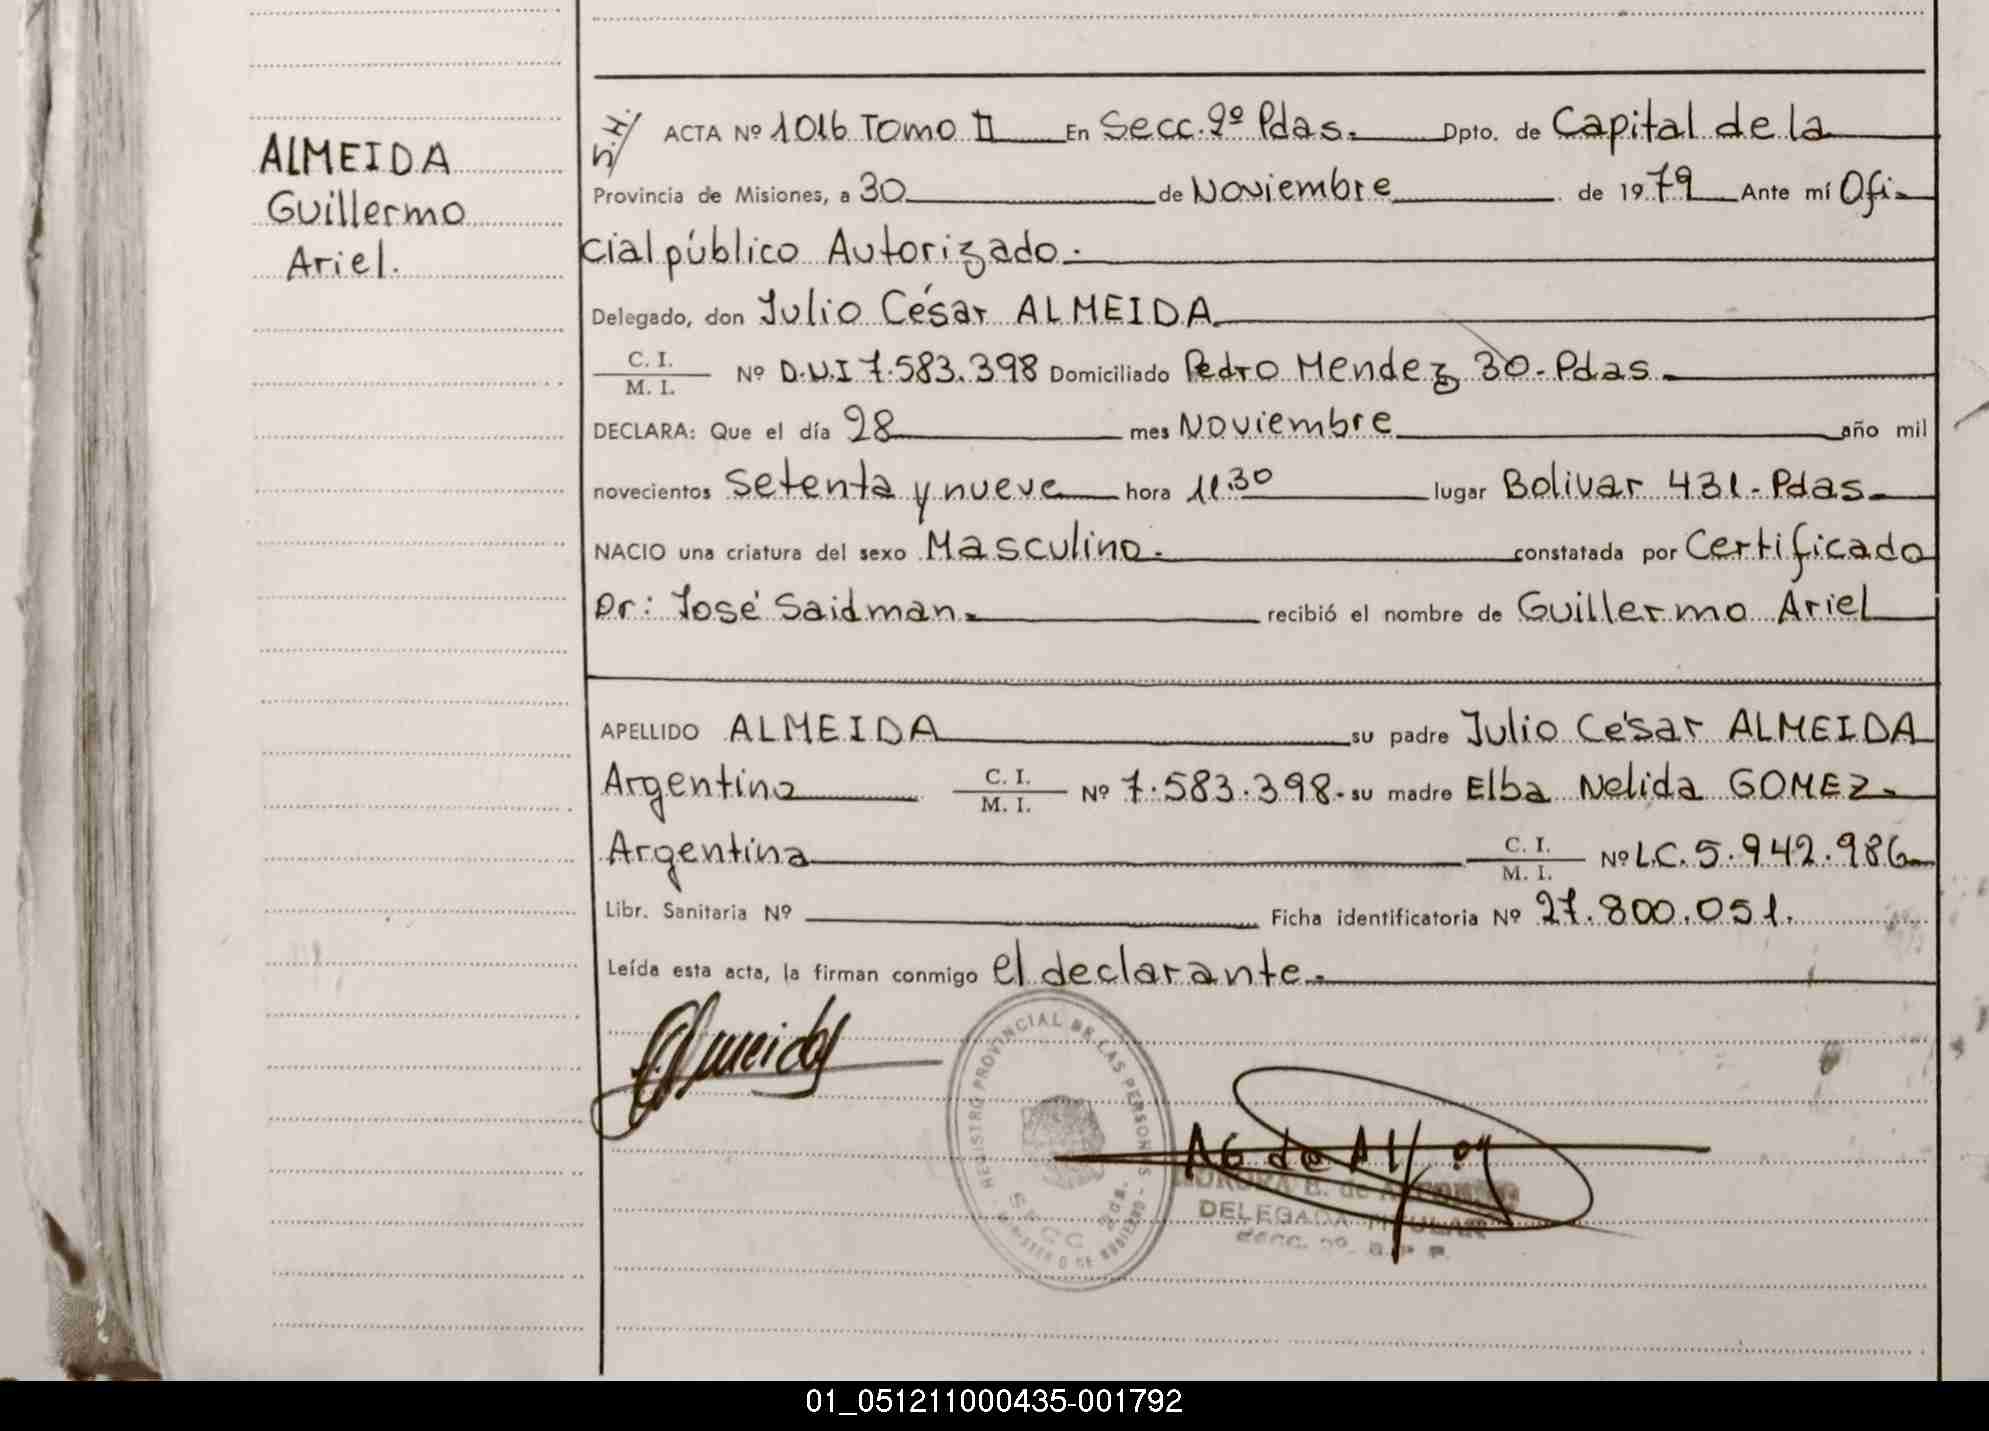 ALMEIDA
Guillermo
Ariel.
S.H. ACTA Nº 1016 Tomo II En Secc. 2º Pdas. Dpto. de Capital de la
Provincia de Misiones, a 30 de Noviembre de 1979 Ante mí Ofi-
cial público Autorizado.
Delegado, don Julio César ALMEIDA
C. I.
M. I. Nº D.U.I 7.583.398 Domiciliado Pedro Mendez 30 - Pdas.
DECLARA: Que el día 28 mes Noviembre año mil
novecientos setenta y nueve hora 11.30 lugar Bolivar 431 - Pdas.
NACIO una criatura del sexo Masculino. constatada por Certificado
Dr: José Saidman. recibió el nombre de Guillermo Ariel
APELLIDO ALMEIDA su padre Julio César ALMEIDA
Argentino C. I. M. I. Nº 7.583.398.- su madre Elba Nelida GOMEZ.
Argentina C. I. M. I. Nº L.C. 5.942.986
Libr. Sanitaria Nº Ficha identificatoria Nº 27.800.051.
Leída esta acta, la firman conmigo el declarante.
Almeida
REGISTRO PROVINCIAL DE LAS PERSONAS
SECC. 2da.
DELEGADA TITULAR
01_051211000435-001792